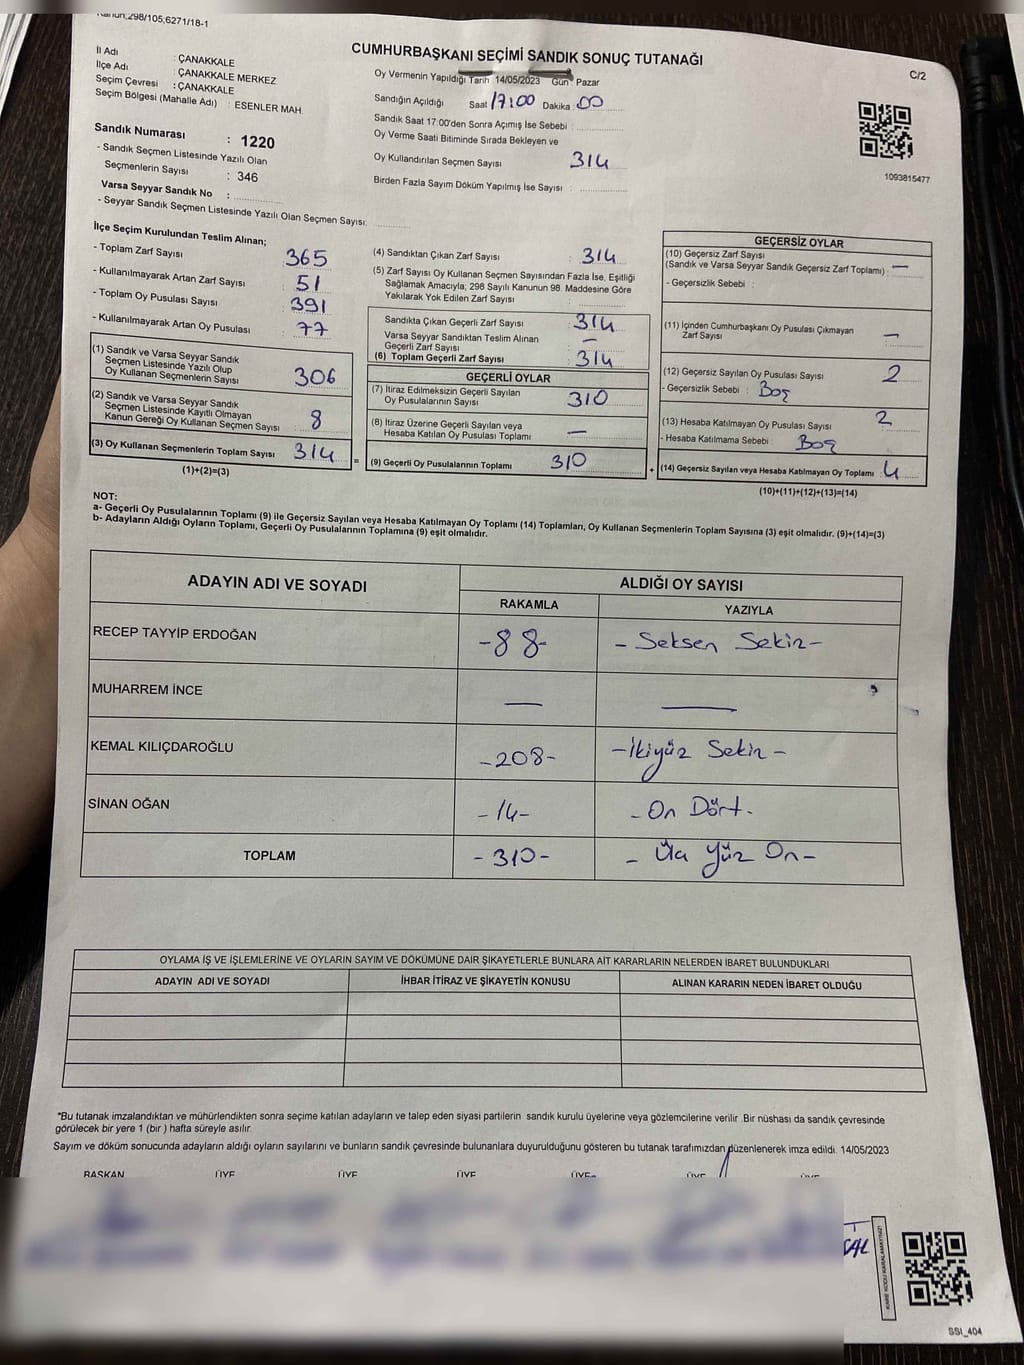 Kanun;298/105;6271/18-1
CUMHURBAŞKANI SEÇİMİ SANDIK SONUÇ TUTANAĞI
C/2
İl Adı : ÇANAKKALE
İlçe Adı : ÇANAKKALE MERKEZ
Seçim Çevresi : ÇANAKKALE
Seçim Bölgesi (Mahalle Adı) : ESENLER MAH.
Oy Vermenin Yapıldığı Tarih 14/05/2023 Gün Pazar
Sandığın Açıldığı Saat 17:00 Dakika : 00
Sandık Saat 17:00'den Sonra Açımış İse Sebebi :
Oy Verme Saati Bitiminde Sırada Bekleyen ve
Oy Kullandırılan Seçmen Sayısı 314
Birden Fazla Sayım Döküm Yapılmış İse Sayısı :
1093815477
Sandık Numarası : 1220
- Sandık Seçmen Listesinde Yazılı Olan
Seçmenlerin Sayısı : 346
Varsa Seyyar Sandık No :
- Seyyar Sandık Seçmen Listesinde Yazılı Olan Seçmen Sayısı:
İlçe Seçim Kurulundan Teslim Alınan;
- Toplam Zarf Sayısı : 365
- Kullanılmayarak Artan Zarf Sayısı : 51
- Toplam Oy Pusulası Sayısı : 391
- Kullanılmayarak Artan Oy Pusulası : 77
(1) Sandık ve Varsa Seyyar Sandık
Seçmen Listesinde Yazılı Olup
Oy Kullanan Seçmenlerin Sayısı : 306
(2) Sandık ve Varsa Seyyar Sandık
Seçmen Listesinde Kayıtlı Olmayan
Kanun Gereği Oy Kullanan Seçmen Sayısı : 8
(3) Oy Kullanan Seçmenlerin Toplam Sayısı : 314
(1)+(2)=(3)
(4) Sandıktan Çıkan Zarf Sayısı : 314
(5) Zarf Sayısı Oy Kullanan Seçmen Sayısından Fazla İse, Eşitliği
Sağlamak Amacıyla; 298 Sayılı Kanunun 98. Maddesine Göre
Yakılarak Yok Edilen Zarf Sayısı :
Sandıkta Çıkan Geçerli Zarf Sayısı : 314
Varsa Seyyar Sandıktan Teslim Alınan
Geçerli Zarf Sayısı : —
(6) Toplam Geçerli Zarf Sayısı : 314
GEÇERLİ OYLAR
(7) İtiraz Edilmeksizin Geçerli Sayılan
Oy Pusulalarının Sayısı : 310
(8) İtiraz Üzerine Geçerli Sayılan veya
Hesaba Katılan Oy Pusulası Toplamı : —
= (9) Geçerli Oy Pusulalarının Toplamı : 310
GEÇERSİZ OYLAR
(10) Geçersiz Zarf Sayısı
(Sandık ve Varsa Seyyar Sandık Geçersiz Zarf Toplamı) : —
- Geçersizlik Sebebi :
(11) İçinden Cumhurbaşkanı Oy Pusulası Çıkmayan
Zarf Sayısı : —
(12) Geçersiz Sayılan Oy Pusulası Sayısı : 2
- Geçersizlik Sebebi : Boş
(13) Hesaba Katılmayan Oy Pusulası Sayısı : 2
- Hesaba Katılmama Sebebi : Boş
+ (14) Geçersiz Sayılan veya Hesaba Katılmayan Oy Toplamı : 4
(10)+(11)+(12)+(13)=(14)
NOT:
a- Geçerli Oy Pusulalarının Toplamı (9) ile Geçersiz Sayılan veya Hesaba Katılmayan Oy Toplamı (14) Toplamları, Oy Kullanan Seçmenlerin Toplam Sayısına (3) eşit olmalıdır. (9)+(14)=(3)
b- Adayların Aldığı Oyların Toplamı, Geçerli Oy Pusulalarının Toplamına (9) eşit olmalıdır.
ADAYIN ADI VE SOYADI
ALDIĞI OY SAYISI
RAKAMLA YAZIYLA
RECEP TAYYİP ERDOĞAN -88- - Seksen Sekiz -
MUHARREM İNCE — —
KEMAL KILIÇDAROĞLU -208- -İkiyüz Sekiz -
SİNAN OĞAN -14- - On Dört -
TOPLAM -310- - Üç Yüz On -
OYLAMA İŞ VE İŞLEMLERİNE VE OYLARIN SAYIM VE DÖKÜMÜNE DAİR ŞİKAYETLERLE BUNLARA AİT KARARLARIN NELERDEN İBARET BULUNDUKLARI
ADAYIN ADI VE SOYADI İHBAR İTİRAZ VE ŞİKAYETİN KONUSU ALINAN KARARIN NEDEN İBARET OLDUĞU
*Bu tutanak imzalandıktan ve mühürlendikten sonra seçime katılan adayların ve talep eden siyasi partilerin sandık kurulu üyelerine veya gözlemcilerine verilir. Bir nüshası da sandık çevresinde
görülecek bir yere 1 (bir) hafta süreyle asılır.
Sayım ve döküm sonucunda adayların aldığı oyların sayılarını ve bunların sandık çevresinde bulunanlara duyurulduğunu gösteren bu tutanak tarafımızdan düzenlenerek imza edildi. 14/05/2023
BAŞKAN ÜYE ÜYE ÜYE ÜYE ÜYE ÜYE
KARE KODU KARALAMAYINIZ!
SSI_404